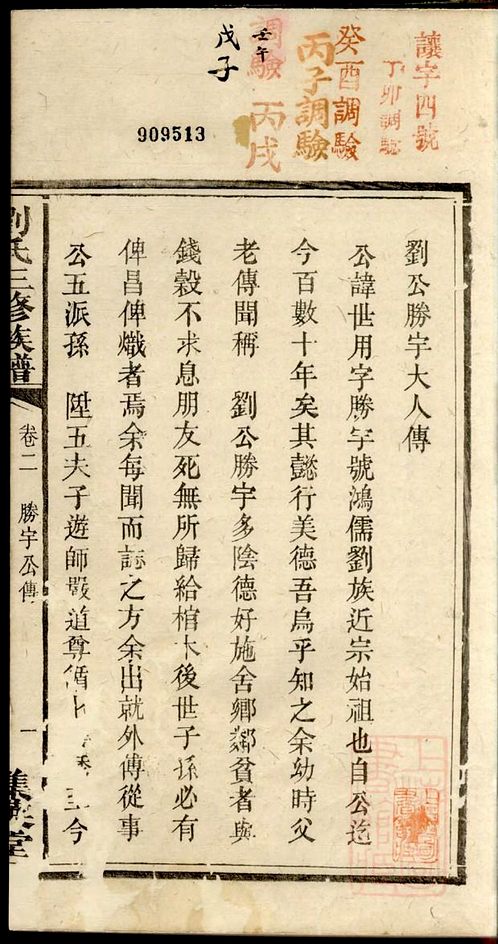 讓字四號
丁卯調驗
癸酉調驗
丙子調驗
調驗
丙戌
壬午
戊子
909513
劉公勝宇大人傳
公諱世用字勝宇號鴻儒劉族近宗始祖也自公迄
今百數十年矣其懿行美德吾烏乎知之余幼時父
老傳聞稱 劉公勝宇多陰德好施舍鄉鄰貧者與
錢穀不求息朋友死無所歸給棺木後世子孫必有
俾昌俾熾者焉余每聞而誌之方余出就外傅從事
公五派孫 陞五夫子遊師嚴道尊循 至今
劉氏三修族譜
卷二
勝宇公傳
一